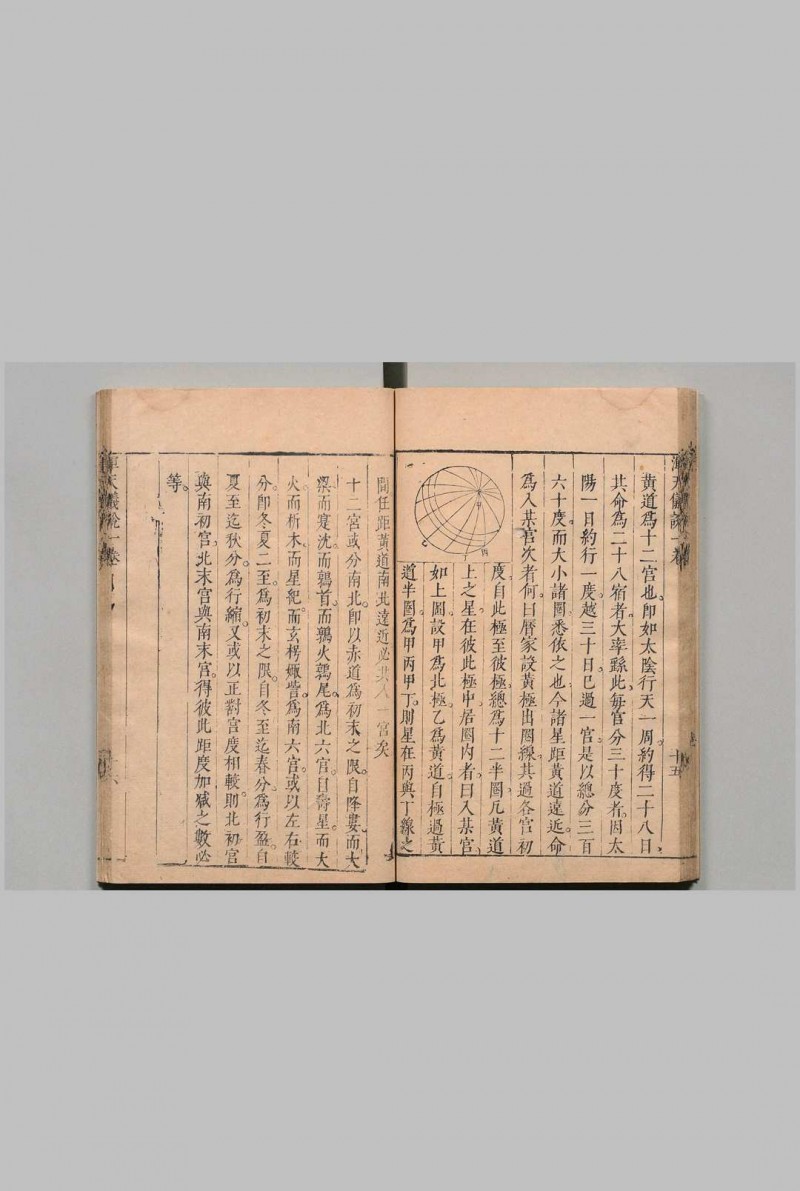 黃道為十二宮也。卽如太陰行天一周約得二十八日、
其命為二十八宿者、大率繇此、每宮分三十度者、因太
陽一日約行一度、越三十日、巳過一宮、是以總分三百
六十度、而大小諸圈悉依之也、今諸星距黃道遠近、命
為入某宮次者何、曰曆家設黃極出圈線、其過各宮初
度、自此極至彼極、總為十二半圈、凡黃道
上之星在彼此極中、居圈內者、曰入某宮、
如上圖、設甲為北極、乙為黃道、自極過黃
道半圈、為甲丙甲丁、則星在丙與丁線之
間、任距黃道南北遠近必共入一宮矣
十二宮或分南北、卽以赤道為初末之限、自降婁而大
梁、而實沈、而鶉首、而鶉火鶉尾、為北六宮、自壽星、而大
火、而析木、而星紀、而玄枵娵訾、為南六宮、或以左右較
分、卽冬夏二至、為初末之限、自冬至迄春分、為行盈、自
夏至迄秋分、為行縮、又或以正對宮度相較、則北初宮
與南初宮、北末宮與南末宮、得彼此距度加減之數必
等。
渾天儀說一卷
十五